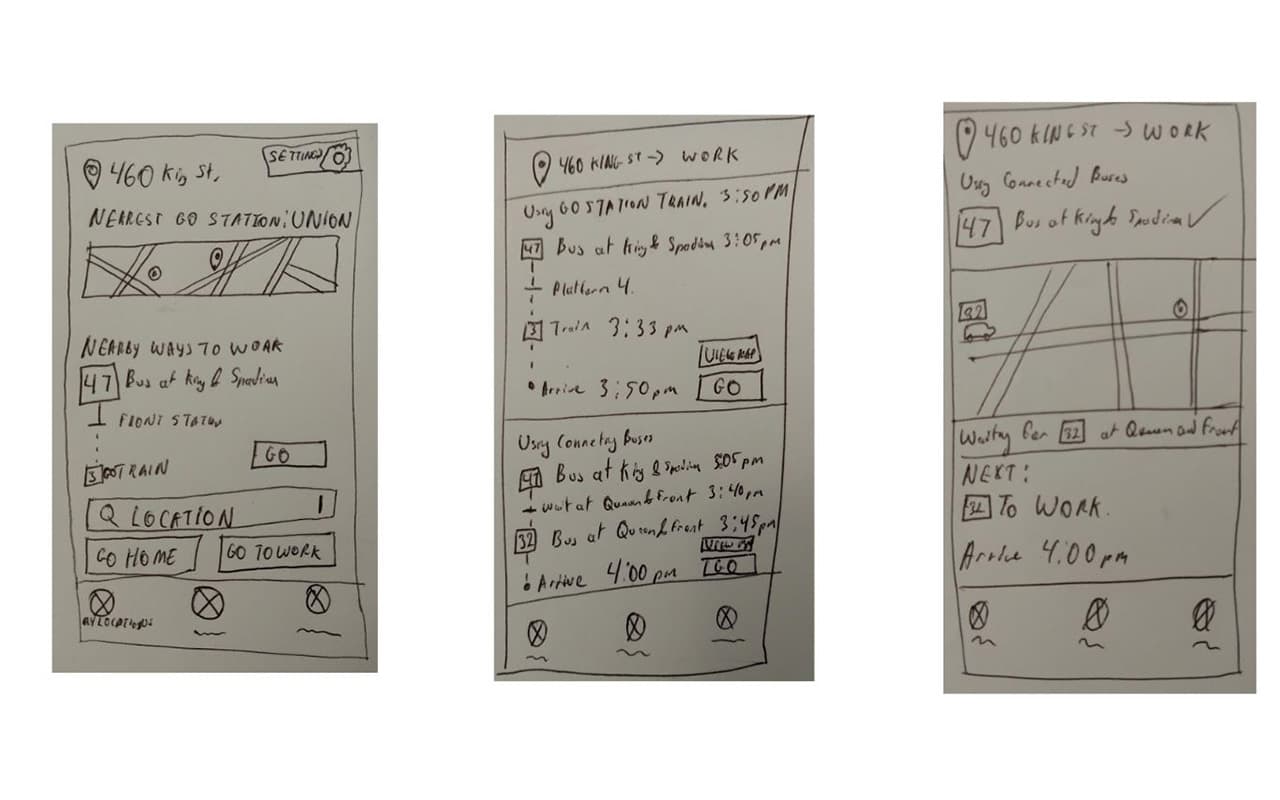 460 King St.
SETTINGS
NEAREST GO STATION: UNION
NEARBY WAYS TO WORK
47 Bus at King & Spadina
FRONT STATION
3 GO TRAIN
GO
Q LOCATION
GO HOME
GO TO WORK
MY LOCATIONS
460 KING ST → WORK
Using GO STATION TRAIN. 3:50 PM
47 Bus at King & Spadina 3:05pm
Platform 4.
3 Train 3:33 pm
VIEW MAP
Arrive 3:50pm
GO
Using Connecting Buses
47 Bus at King & Spadina 3:05pm
wait at Queen & Front 3:40pm
32 Bus at Queen & Front 3:45pm
VIEW MAP
Arrive 4:00 pm
GO
460 KING ST → WORK
Using Connected Buses
47 Bus at King & Spadina ✓
32
Waiting for 32 at Queen and Front
NEXT:
32 TO WORK.
Arrive 4:00pm